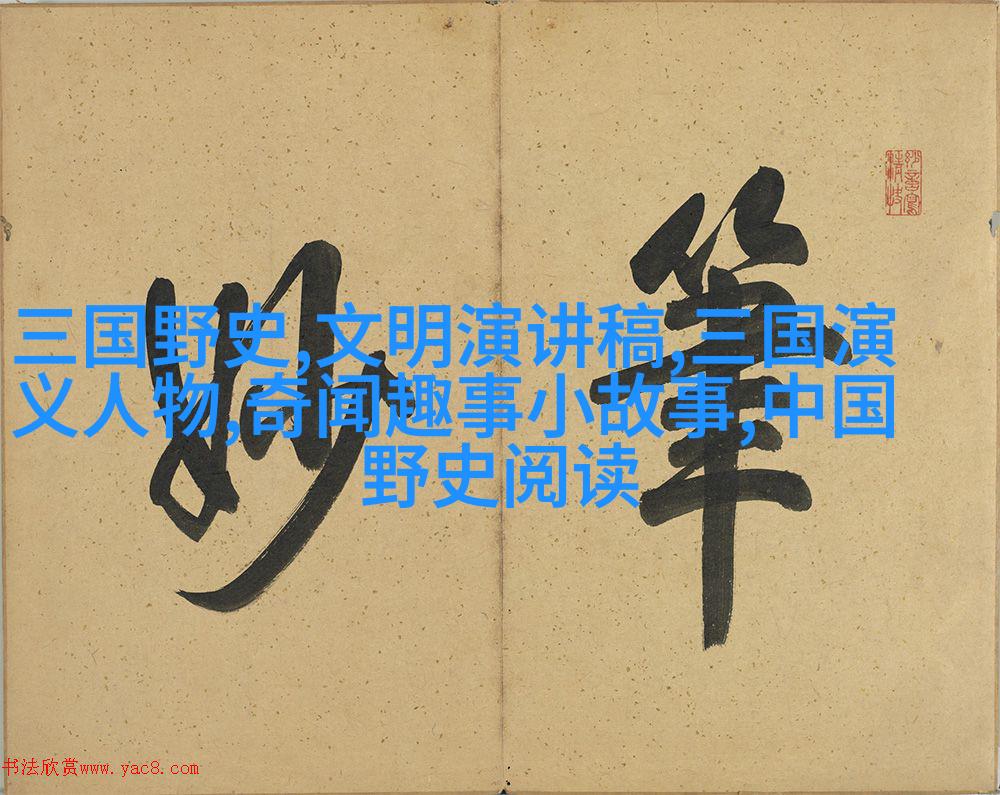 筆妙
三国野史,文明演讲稿,三国演
义人物,奇闻趣事小故事,中国
野史阅读
书法欣赏www.yac8.com